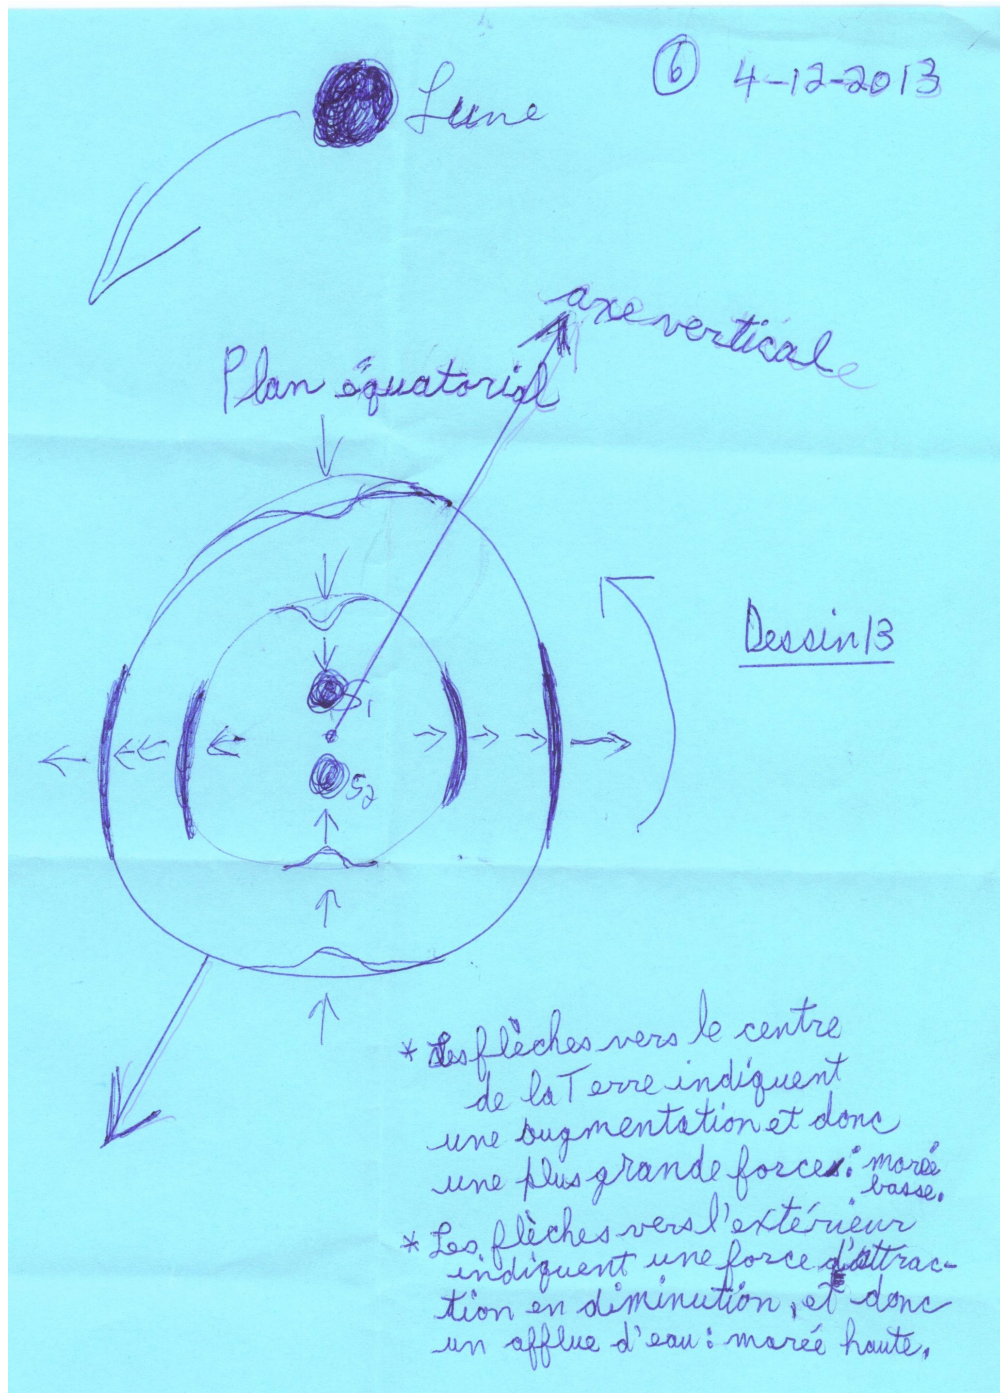 6 4-12-2013
Lune
axe verticale
Plan équatorial
Dessin 13
S1
S2
* Les flèches vers le centre
de la Terre indiquent
une augmentation et donc
une plus grande force: marée
basse.
* Les flèches vers l'extérieur
indiquent une force d'attrac-
tion en diminution, et donc
un afflue d'eau: marée haute.